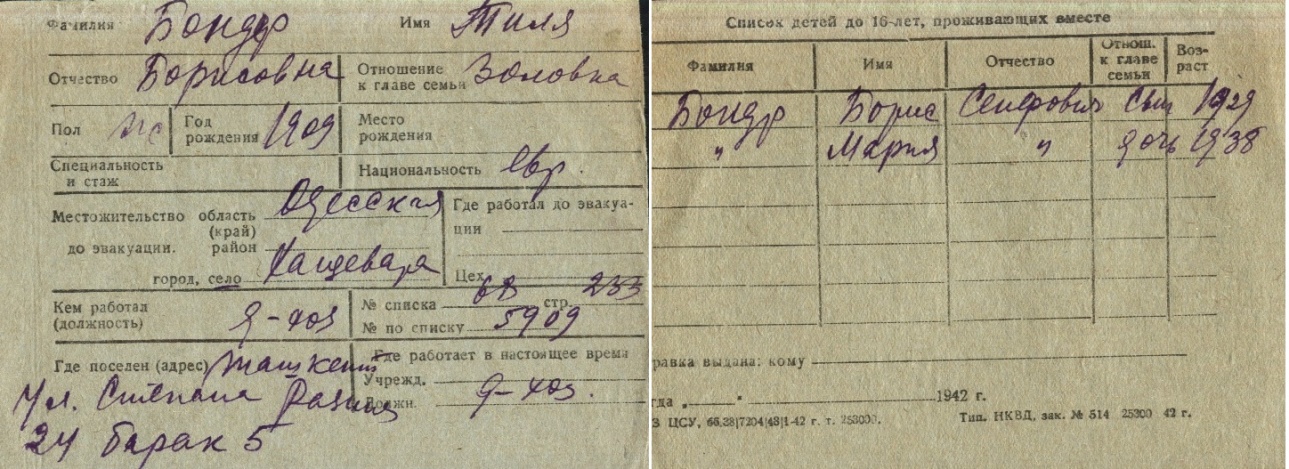 Фамилия Бондр Имя Тиля
Отчество Борисовна Отношение к главе семьи Золовка
Пол Год рождения 1909 Место рождения
Специальность и стаж
Национальность евр.
Местожительство до эвакуации. область (край) Одесская
район
город, село Хащевата
Где работал до эвакуации
Цех
Кем работал (должность) д-хоз
№ списка 68 стр. 233
№ по списку 5909
Где поселен (адрес) Ташкент
Ул. Степана Разина
24 барак 5
Где работает в настоящее время
Учрежд.
Должн. д-хоз.
Список детей до 16-лет, проживающих вместе
Фамилия Имя Отчество Отнош. к главе семьи Возраст
Бондр Борис 1929
" Мария " дочь 1938
равка выдана: кому
гда „ " 1942 г.
З ЦСУ, т. 253000.
Тип. НКВД, зак. № 514 25300 42 г.